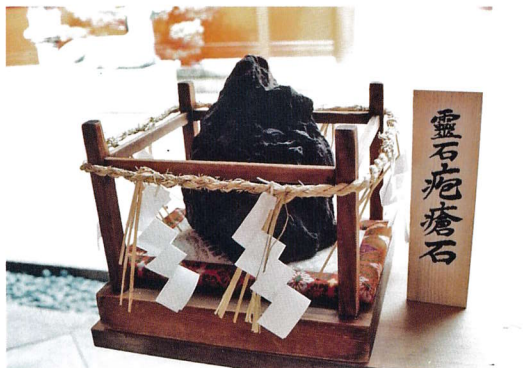 靈石疱瘡石